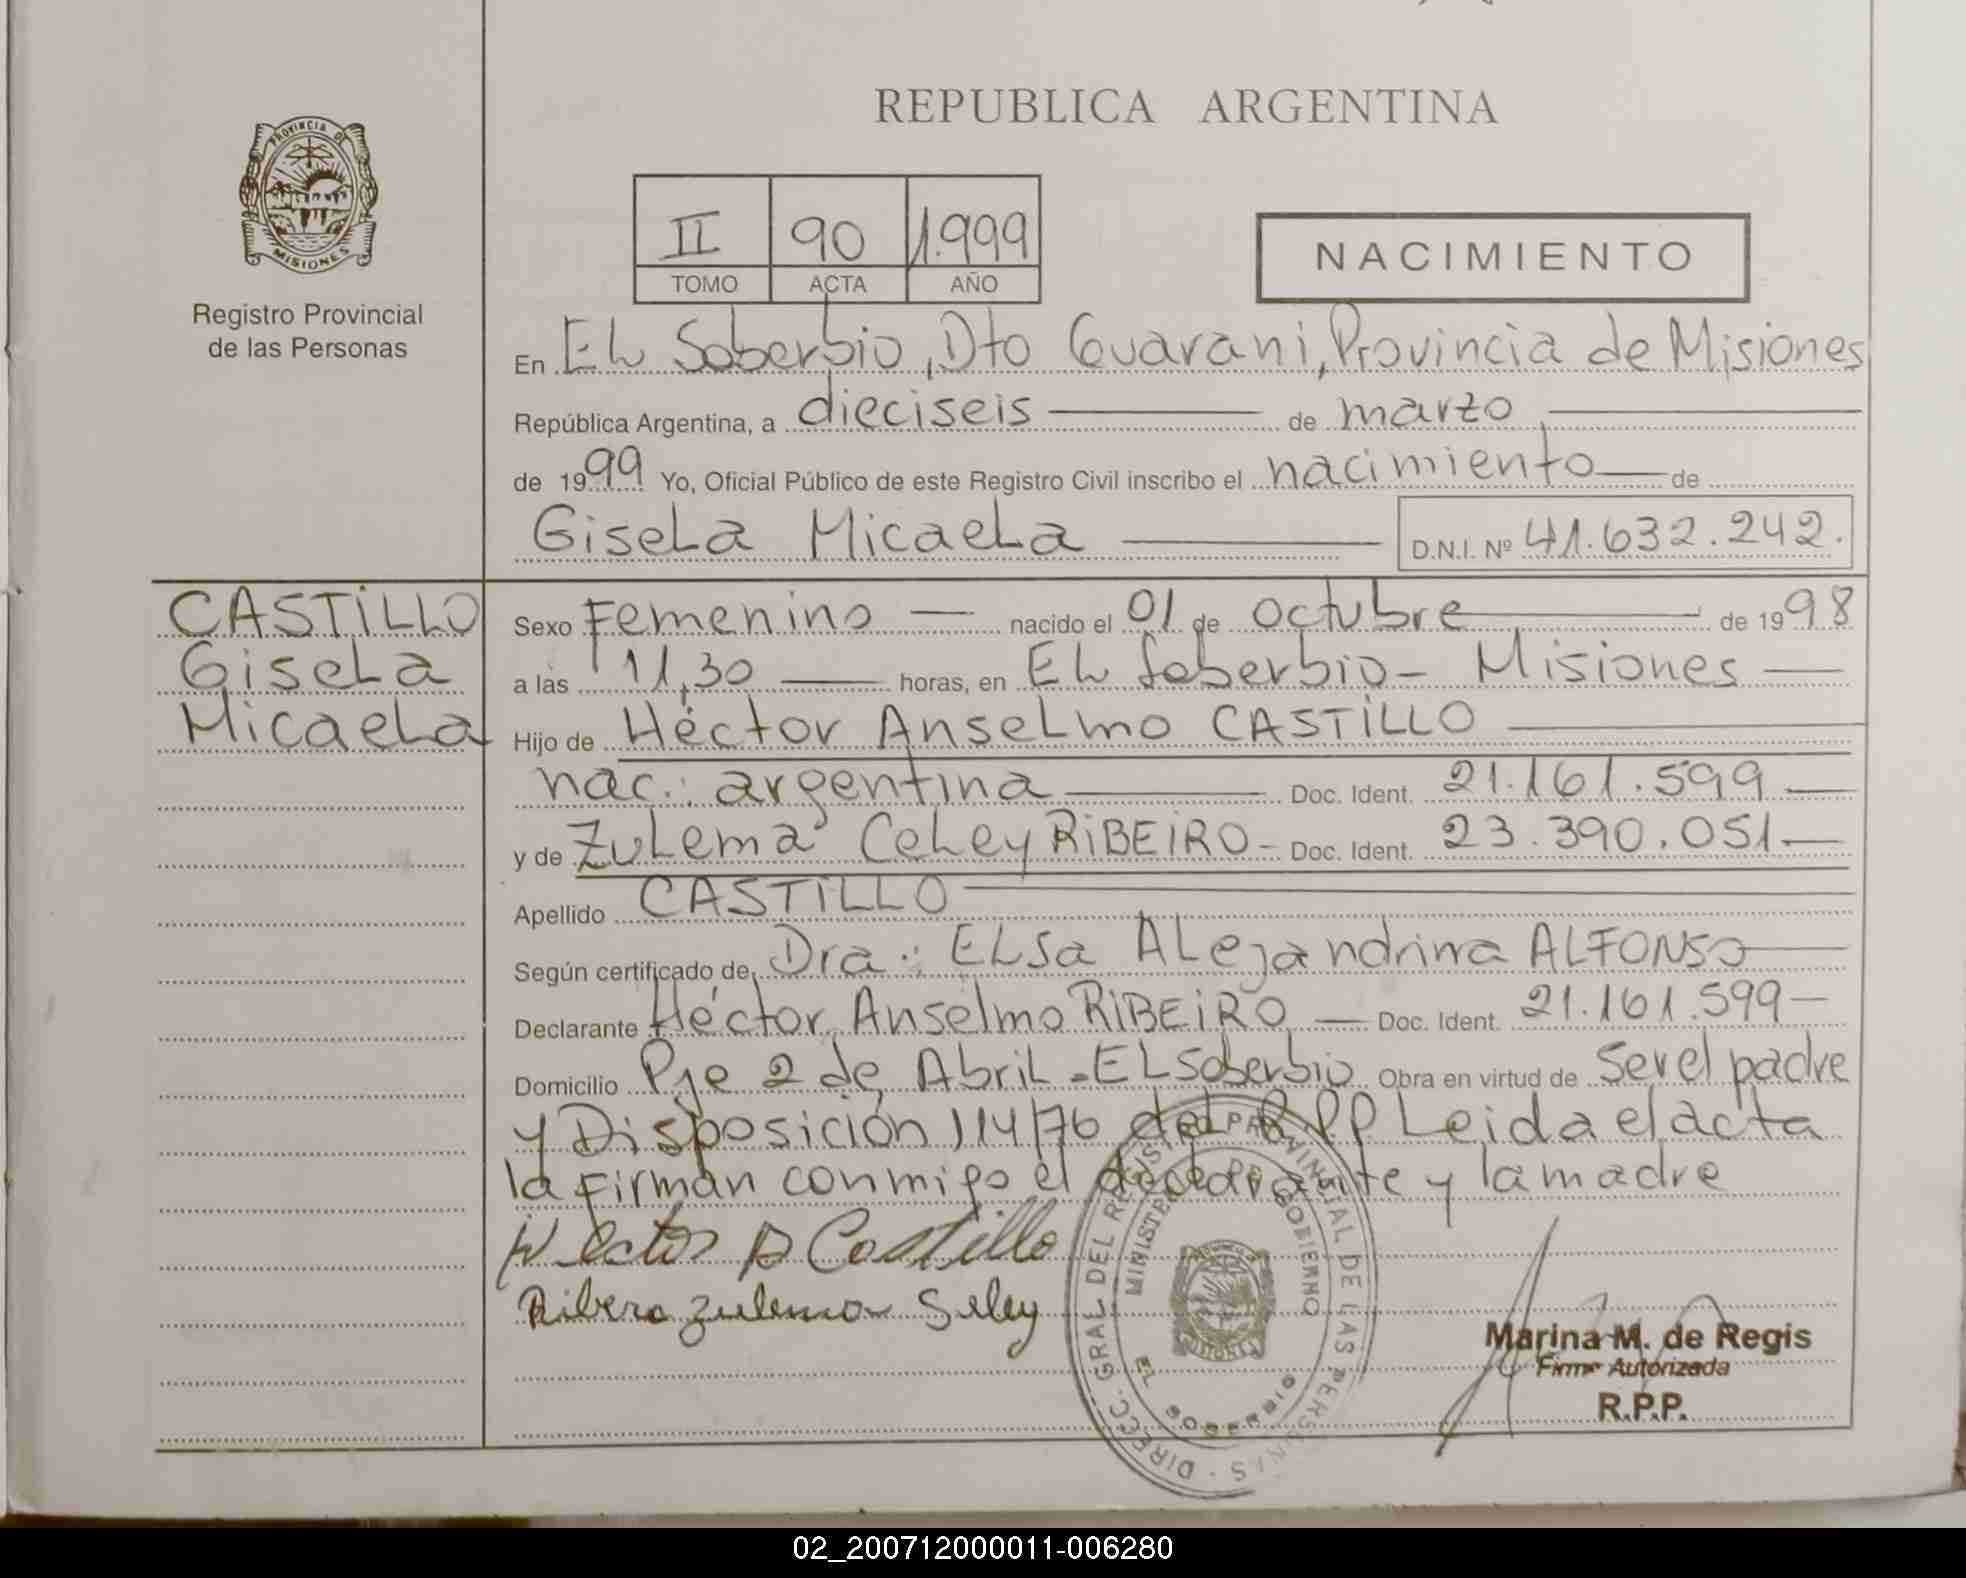 REPUBLICA ARGENTINA
PROVINCIA DE
MISIONES
Registro Provincial
de las Personas
II 90 1.999
TOMO ACTA AÑO
NACIMIENTO
En EL Soberbio, Dto Guarani, Provincia de Misiones
República Argentina, a dieciseis de marzo
de 1999 Yo, Oficial Público de este Registro Civil inscribo el nacimiento de
Gisela Micaela D.N.I. Nº 41.632.242.
CASTILLO
Gisela
Micaela
Sexo Femenino nacido el 01 de octubre de 1998
a las 11,30 horas, en EL Soberbio - Misiones
Hijo de Héctor Anselmo CASTILLO
nac.: argentina Doc. Ident. 21.161.599
y de Zulema Celey RIBEIRO - Doc. Ident. 23.390.051
Apellido CASTILLO
Según certificado de Dra.: Elsa Alejandrina ALFONSO
Declarante Héctor Anselmo RIBEIRO Doc. Ident. 21.161.599
Domicilio Pje 2 de Abril - EL Soberbio Obra en virtud de ser el padre
y Disposición 114/76 del R.P.P Leida el acta
la firman conmigo el declarante y la madre
Hector A Castillo
Ribero Zulema Seley
DIRECC. GRAL DEL REGISTRO PROVINCIAL DE LAS PERSONAS
MINISTERIO DE GOBIERNO
EL SOBERBIO
MISIONES
Marina M. de Regis
Firma Autorizada
R.P.P.
02_200712000011-006280